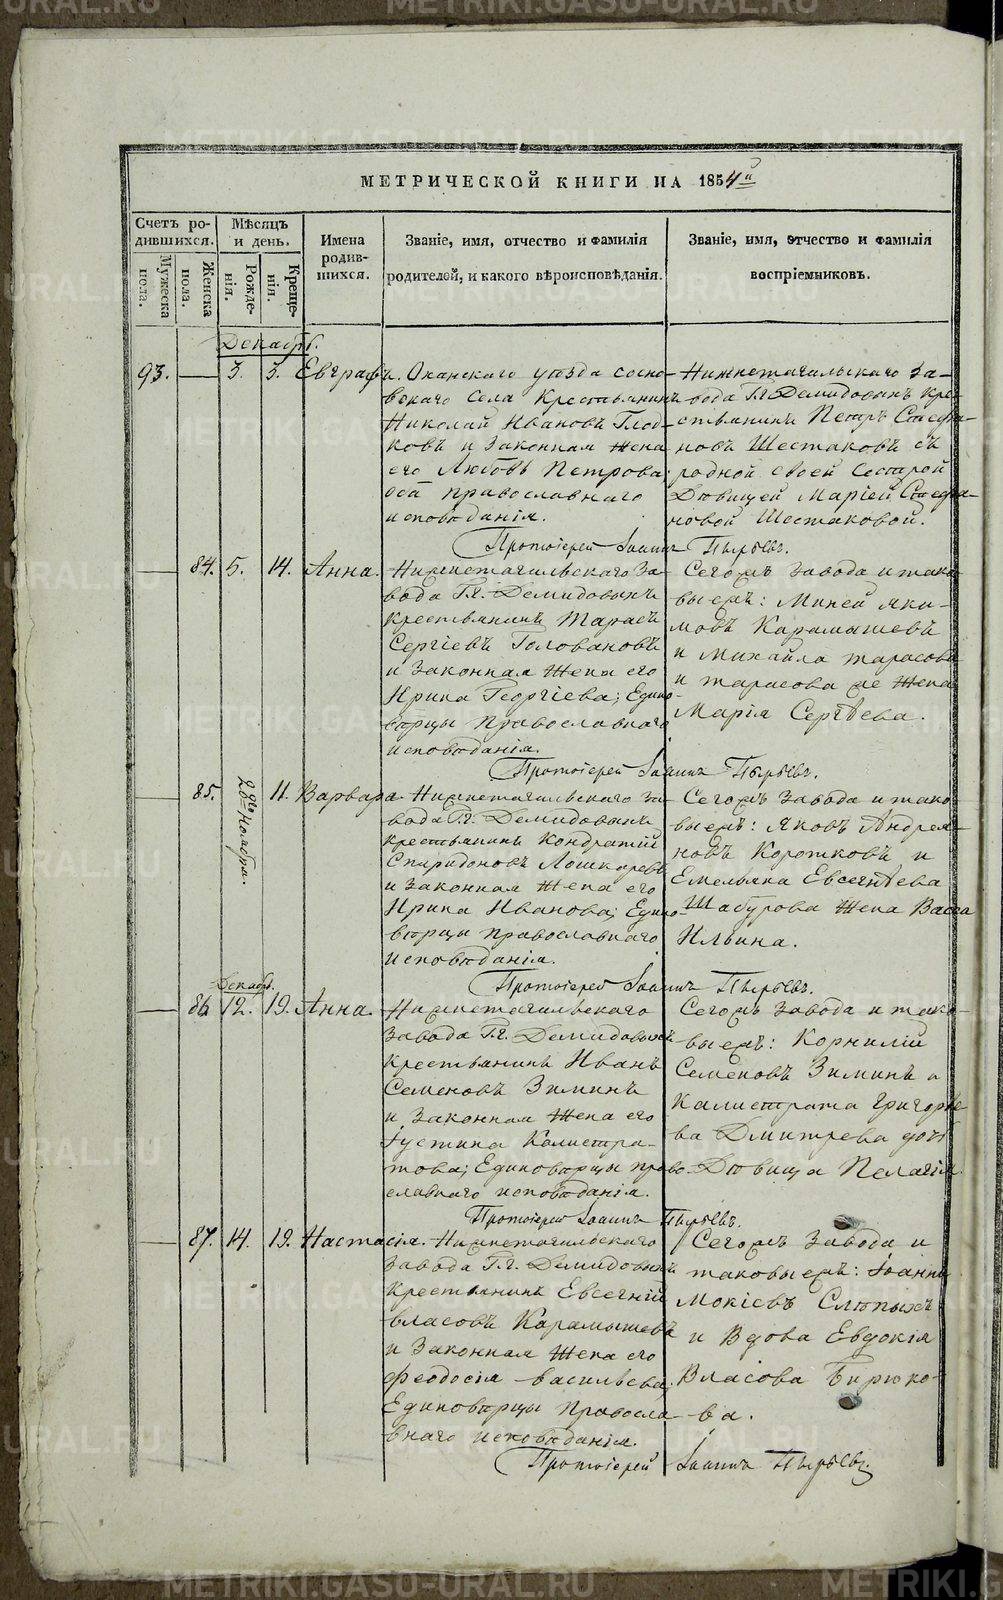 МЕТРИЧЕСКОЙ КНИГИ НА 1854й
Счетъ ро-
дившихся.
Мужеска
пола.
Женска
пола.
Мѣсяцъ
и день.
Рожде-
нія.
Креще-
нія.
Имена
родив-
шихся.
Званіе, имя, отчество и фамилія
родителей, и какого вѣроисповѣданія.
Званіе, имя, отчество и фамилія
воспріемниковъ.
Декабрь.
93. — 3. 3. Евграфъ.
Оханскаго уѣзда сосно-
вскаго села Крестьянинъ
Николай Ивановъ Глод-
ковъ и Законная Жена
его Любовь Петрова;
оба православнаго
исповѣданія.
Нижнетагильскаго За-
вода Г.г. Демидовыхъ Кре-
стьянинъ Петръ Стефа-
новъ Шестаковъ съ
родной своей Сестрой
Дѣвицей Маріей Стефа-
новой Шестаковой.
Протоіерей Іоаннъ Пырьевъ.
— 84. 5. 14. Анна.
Нижнетагильскаго За-
вода Г.г. Демидовыхъ
крестьянинъ Тарасъ
Сергіевъ Головановъ
и Законная Жена его
Ирина Георгіева; Едино-
вѣрцы православнаго
исповѣданія.
Сегожъ Завода и тако-
выежъ: Миней Яки-
мовъ Карамышевъ
и Михайла тарасова
и тарасова же Жена
Марія Сергѣева.
Протоіерей Іоаннъ Пырьевъ.
— 85. 28го Ноября. 11. Варвара.
Нижнетагильскаго За-
вода Г.г. Демидовыхъ
крестьянинъ Кондратій
Спиридоновъ Лошкаревъ
и Законная Жена его
Ирина Иванова; Едино-
вѣрцы православнаго
исповѣданія.
Сегожъ Завода и тако-
выежъ: Яковъ Андрея-
новъ Коротковъ и
Емельяна Евсегнѣева
Шабурова Жена Васса
Ильина.
Протоіерей Іоаннъ Пырьевъ.
Декабр.
— 86. 12. 19. Анна.
Нижнетагильскаго
Завода Г.г. Демидовыхъ
крестьянинъ Иванъ
Семеновъ Зиминъ
и Законная Жена его
Густина Калистра-
това; Единовѣрцы право-
славнаго исповѣданія.
Сегожъ Завода и тако-
выежъ: Корнилій
Семеновъ Зиминъ и
Калистрата Григорье-
ва Дмитрева дочь
Дѣвица Пелагія.
Протоіерей Іоаннъ Пырьевъ.
— 87. 14. 19. Настасія.
Нижнетагильскаго
Завода Г.г. Демидовыхъ
Крестьянинъ Евсегній
власовъ Карамышевъ
и Законная Жена его
Феодосія васильева;
Единовѣрцы Правосла-
внаго исповѣданія.
Сегожъ Завода и
таковыежъ: Іоаннъ
Мокіевъ Слѣпыхъ
и Вдова Евдокія
Власова Бирюко-
ва.
Протоіерей Іоаннъ Пырьевъ.